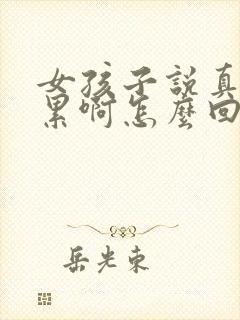 女孩子說真
累啊怎麼回
岳光東